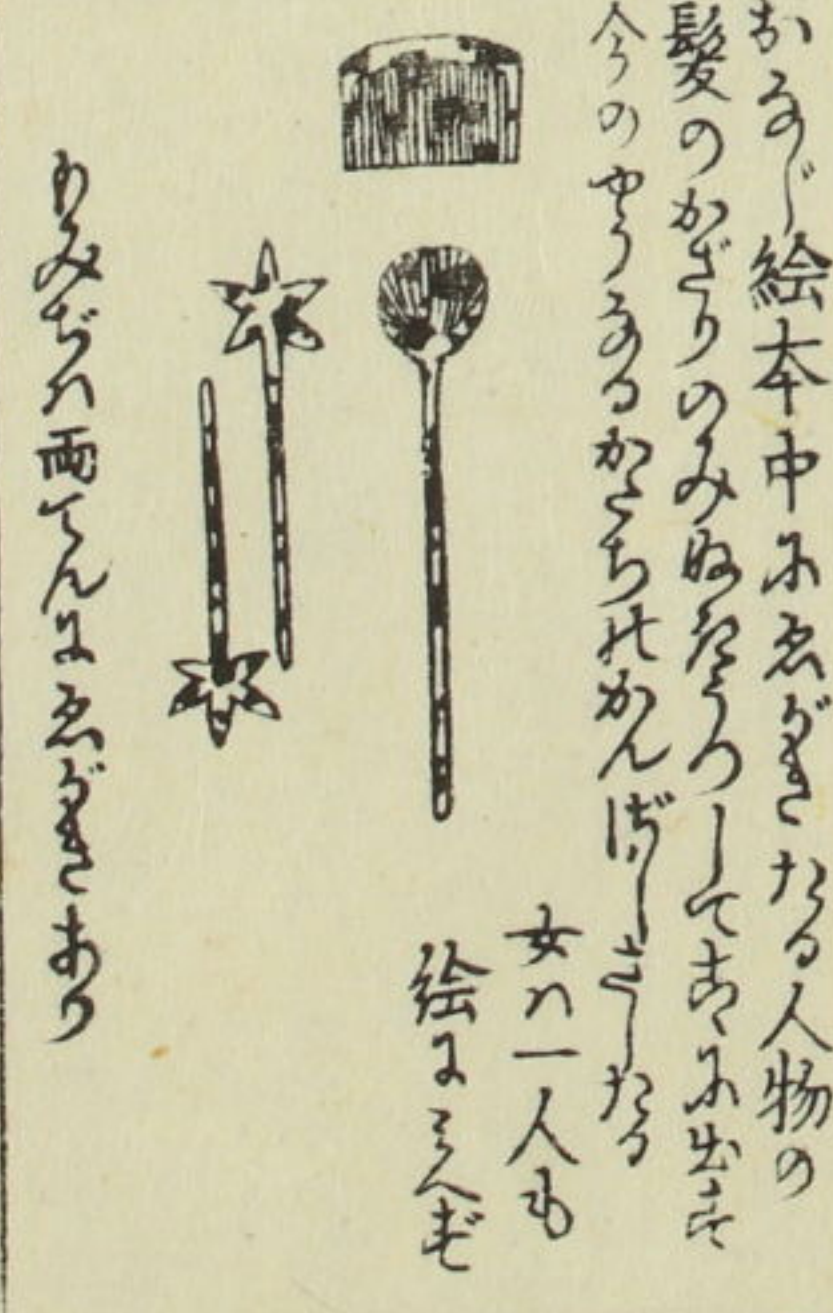 おなじ絵本中にゑがきたる人物の
髪のかざりのみぬきうつしてこゝに出す
今のやうなるかたちのかんざしさしたる
女ハ一人も
絵にミえず
もみぢハ両てんにゑがきあり